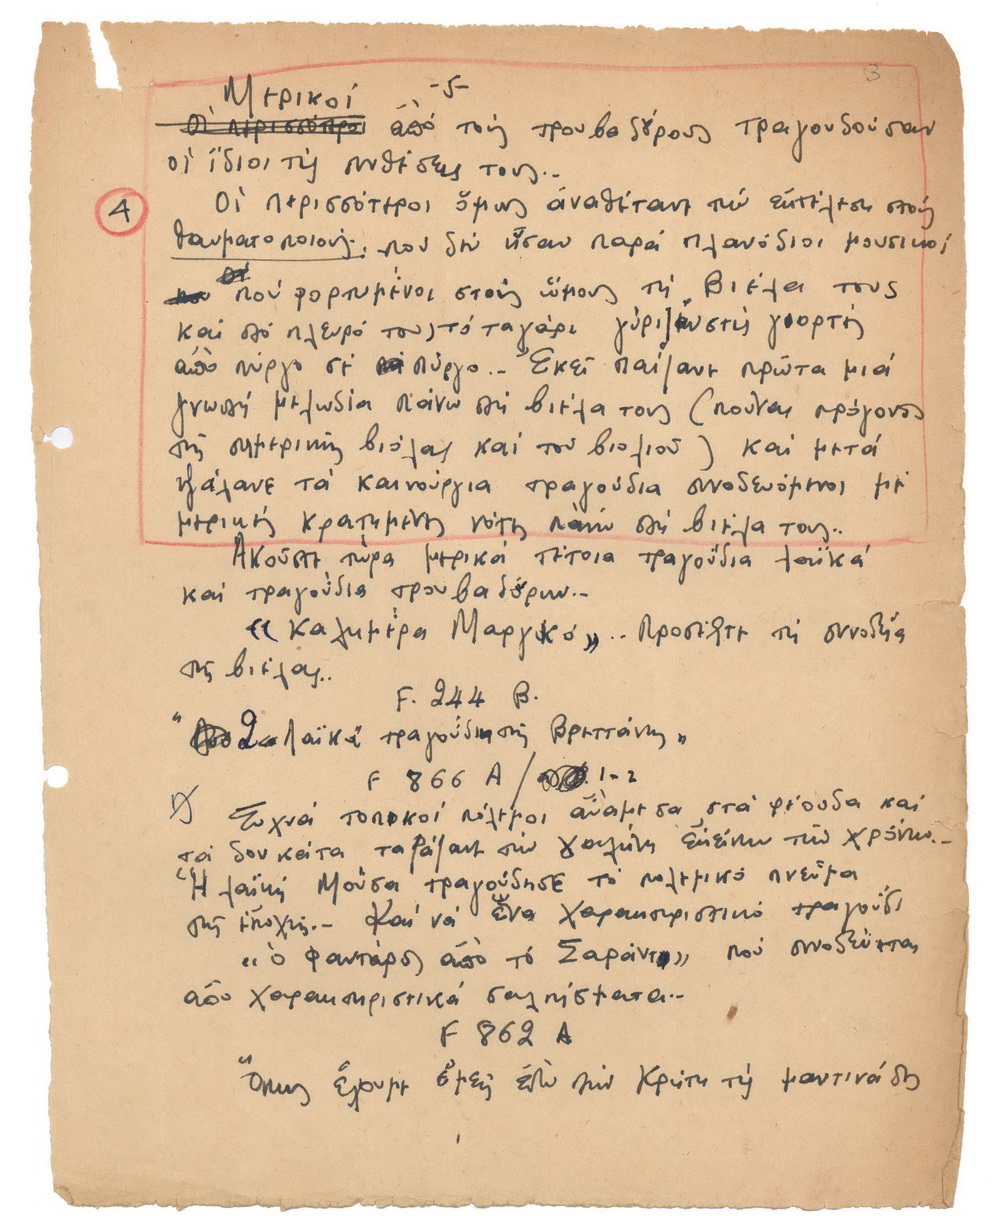 3
-5-
Μερικοί
Οἱ περισσότεροι ἀπό τούς τρουβαδούρους τραγουδούσαν
οἱ ἴδιοι τίς συνθέσεις τους..
4
Οἱ περισσότεροι ὅμως ἀναθέτανε τήν ἐκτέλεση στούς
θαυματοποιούς, πού δέν ἦσαν παρά πλανόδιοι μουσικοί
πού φορτωμένοι στούς ὤμους τή Βιέλα τους
καί στό πλευρό τους τό ταγάρι γύριζαν στίς γιορτές
ἀπό πύργο σέ πύργο.- Ἐκεῖ παίζανε πρῶτα μιά
γνωστή μελωδία πάνω στή βιέλα τους (πούναι πρόγονος
τῆς σημερινῆς βιόλας καί τοῦ βιολιοῦ) καί μετά
ψάλανε τά καινούργια τραγούδια συνοδευόμενοι μέ
μερικές κρατημένες νότες πάνω στή βιέλα τους..
Ἀκοῦστε τώρα μερικά τέτοια τραγούδια λαϊκά
καί τραγούδια τρουβαδούρων.-
«Καλημέρα Μαργκό».. Προσέξτε τή συνοδεία
τῆς βιέλας..
F. 244 B.
" 2 Λαϊκά τραγούδια τῆς Βρεττάνης"
F 866 A / 1-2
Συχνά τοπικοί πόλεμοι ἀνάμεσα στά φέουδα καί
τά δουκάτα ταράζανε τήν γαλήνη ἐκείνων τῶν χρόνων.-
Ἡ λαϊκή Μοῦσα τραγούδησε τό πολεμικό πνεῦμα
τῆς ἐποχῆς.- Καί νά ἕνα χαρακτηριστικό τραγούδι
«ὁ Φαντάρος ἀπό τό Σαράντε» πού συνοδεύεται
ἀπό χαρακτηριστικά σαλπίσματα..
F 862 A
Ὅπως ἔχουμε ἐμεῖς ἐδῶ στήν Κρήτη τίς μαντινάδες